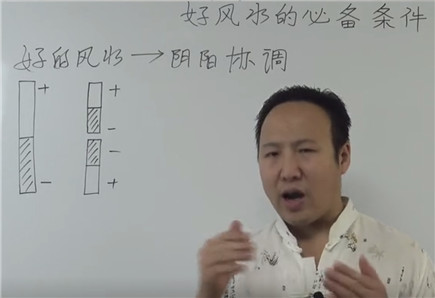 好风水的必备条件
好的风水→阴阳协调
+ +
-
- -
+